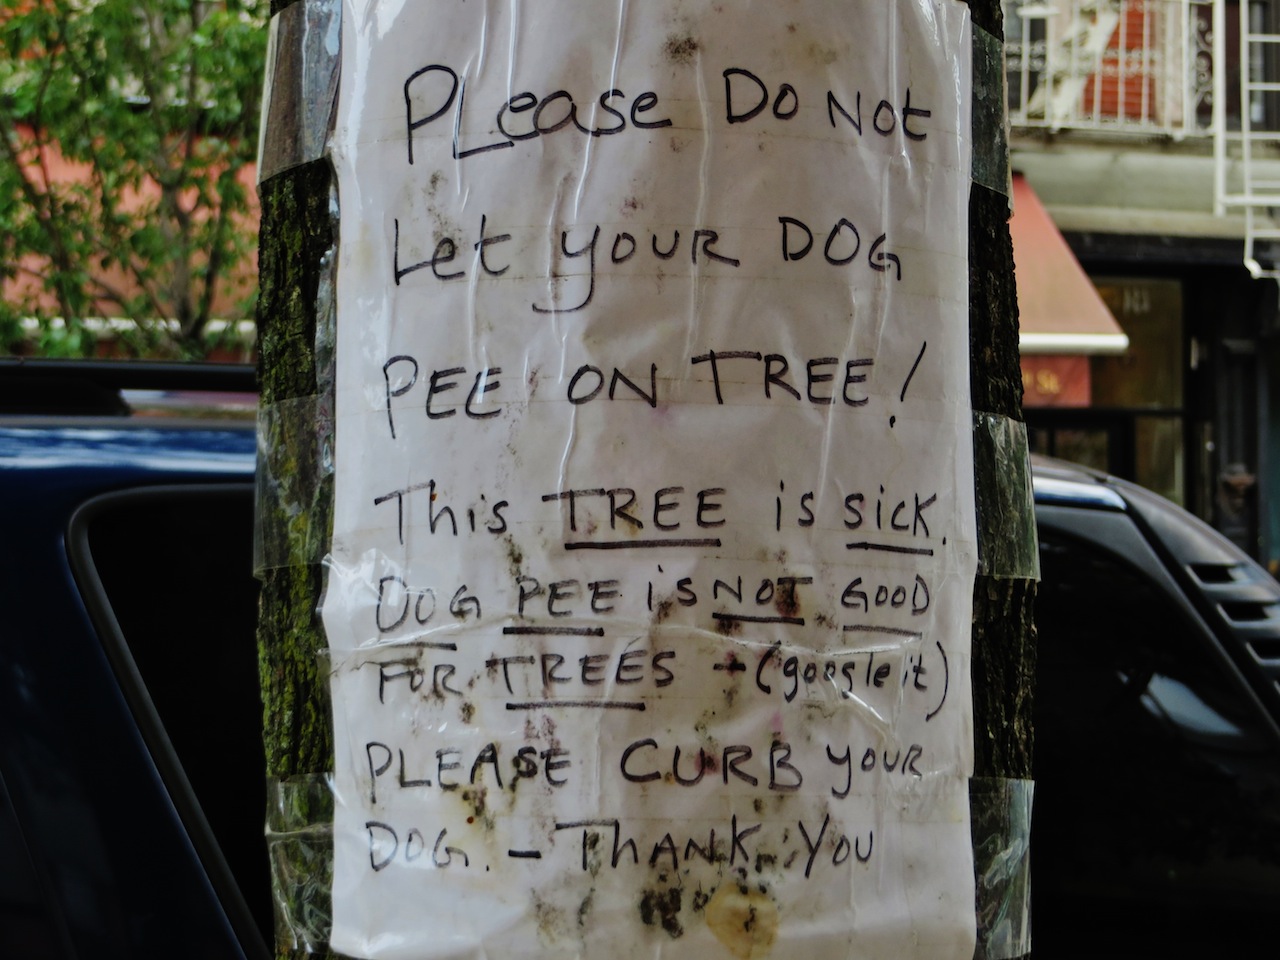 Please Do Not
Let your DOG
PEE ON TREE!
This TREE is sick.
DOG PEE is NOT GOOD
FOR TREES - (google it)
PLEASE CURB your
DOG. - THANK YOU